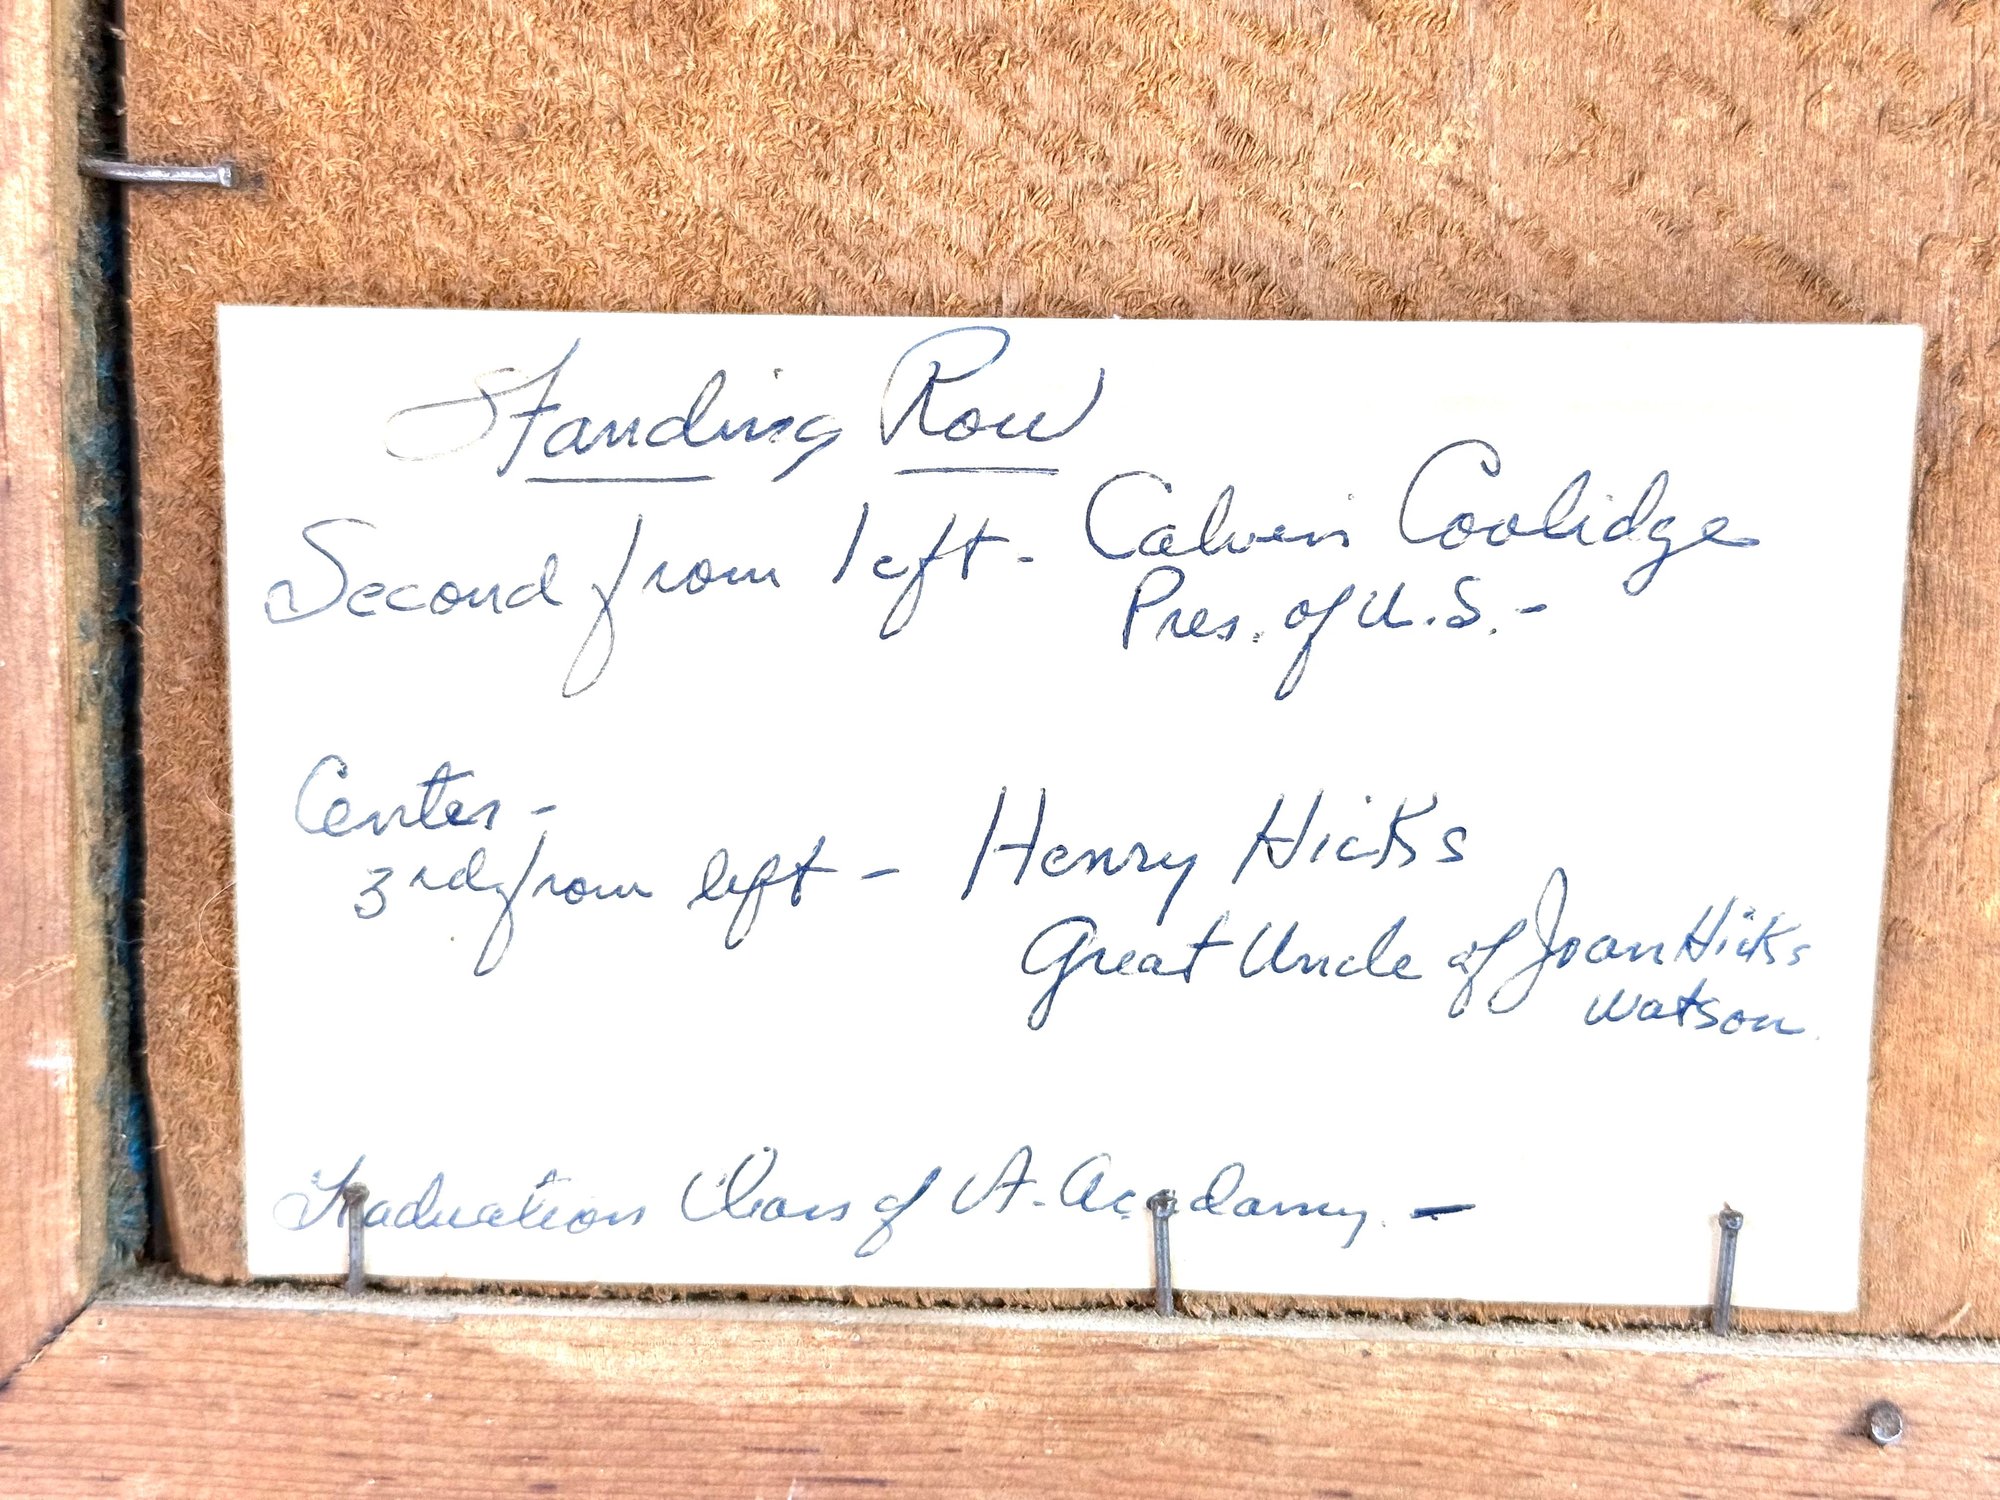 Standing Row
Second from left - Calvin Coolidge
Pres. of U.S. -
Center -
3rd from left - Henry Hicks
Great Uncle of Joan Hicks
Watson
Graduation Class of A. Academy -